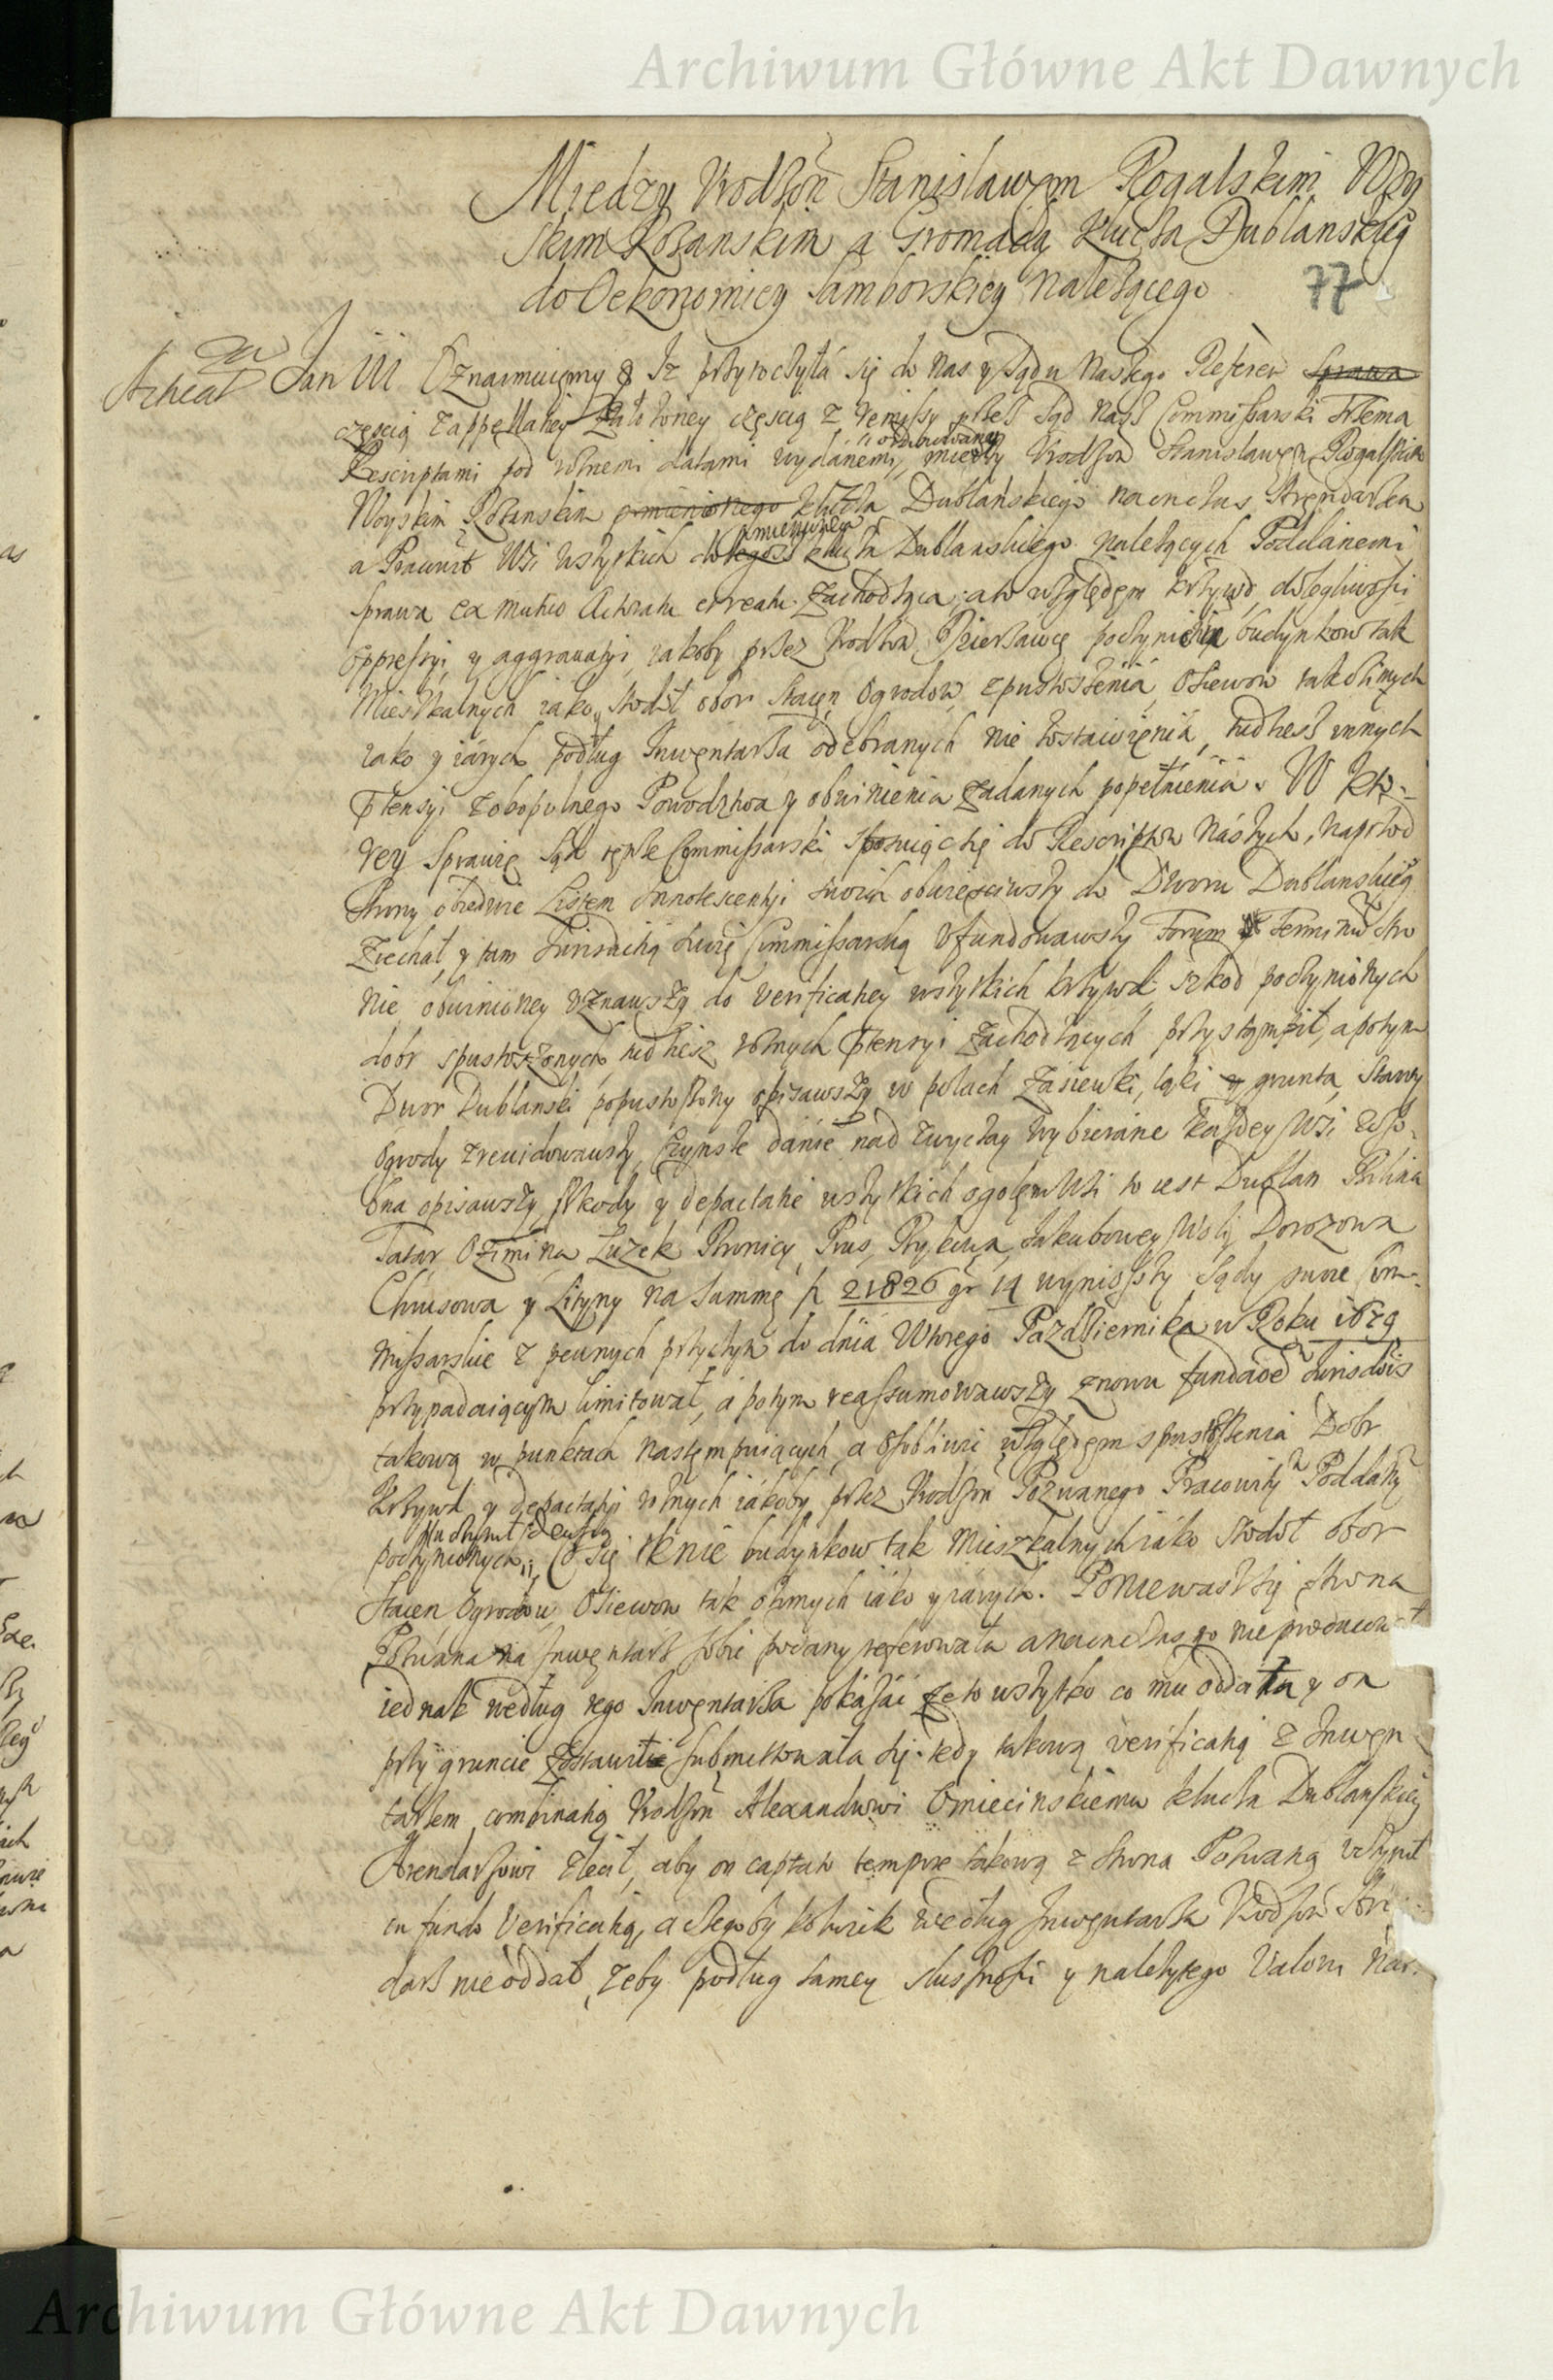 Archiwum Główne Akt Dawnych
Miedzy Urodzoń Stanisławem Rogalskim Woy
skim Rożanskim a Gromadą Klucza Dublanskieg
do Oekonomiey Samborskiey należącego
77
Jan III Oznaimuiemy Iż przytoczyła się do Nas y sądu Naszego Referen Sprawa
częscią z appellatiey założoney częscią z remissy przez sąd Nasz Commissarski
Rescriptami pod datami wydanemi, miedzy Urodzon Stanisławem Rogalskim
Woyskim Rożanskim Klucza Dublańskiego Arendarza
a Wsi wszytkich do klucza Dublanskiego należących Poddanemi
sprawa ex mutuo zachodząca, a to względem krzywd dolegliwości
oppressyi y aggrauatyi iakoby przez Urodzon Dzierzawcę poczynienia budynkow tak
Mieszkalnych iako stodoł obor Staien Ogrodow, zpustoszenia, Osiewow tak ozimych
iako y iarych podług Inwentarza odebranych nie zostawienia, tudziesz innych
Ptensyi z obopolnego Powodztwa y obwinienia zadanych popełnienia. W kto-
rey Sprawie Sąd Commissarski stosuiąc się do Rescriptow Naszych, naprzod
Strony obiedwie Listem Innotescentyi swoich obwiesciwszy do Dworu Dublanskieg
Ziechał, y tam Iurisdictią swoię Commissarską Ufundowawszy Forum y Terminu Stro
nie obwinioney uznawszy do verificatiey wszytkich krzywd, szkod poczynionych
dobr spustoszonych, tudziesz Ptensyi zachodzących przystąmpił, a potym
Dwor Dublanski popustoszony opisawszy w polach zasiewki, łąki y grunta, Stawy
Ogrody zrewidowawszy, Czynsze danie nad zwyczay wybierane każdey Wsi z oso-
bna opisawszy, szkody y depactatie wszytkich ogołem Wsi to iest Dublan Bilina
Tatar, Ozimina Luzek Stronicy, Prus, Rykowa, Iakubowey Woli, Dorozowa
Chrusowa y Lityny na summę fl 21826 gr 14 wyniosszy Sądy swoie Com-
missarskie z pewnych przyczyn do dnia Wtorego Pazdziernika w Roku 1679
przypadaiącym limitował, a potym reassumowawszy znowu
takową w punktach następuiących, a osobliwie względem spustoszenia Dobr
krzywd y depactatyi iakoby przez Urodzon Pozwanego Poddany
poczynionych, Co się tknie budynkow tak Mieszkalnych iako stodoł obor
Staien, Ogrodow Osiewow tak ozimych iako y iarych. Poniewasz się strona
Pozwana na Inwentarz sobie podany referowała a go nie
iednak według tego Inwentarza pokazać że to wszytko co mu oddała y on
przy gruncie zostawił submittowała się. tedy takową verificatią z Inwen
tarzem combinatią Urodzon Alexandrowi Omiecinskiemu klucza Dublanskiey
Arendarzowi zlecił, aby on captato tempore takową z stroną Pozwaną uczynił
in fundo Verificatią, a czegoby kolwiek według Inwentarza Urodzon
darz nie oddał, żeby podług samey słusznosci y należytego Valoru
Archiwum Główne Akt Dawnych